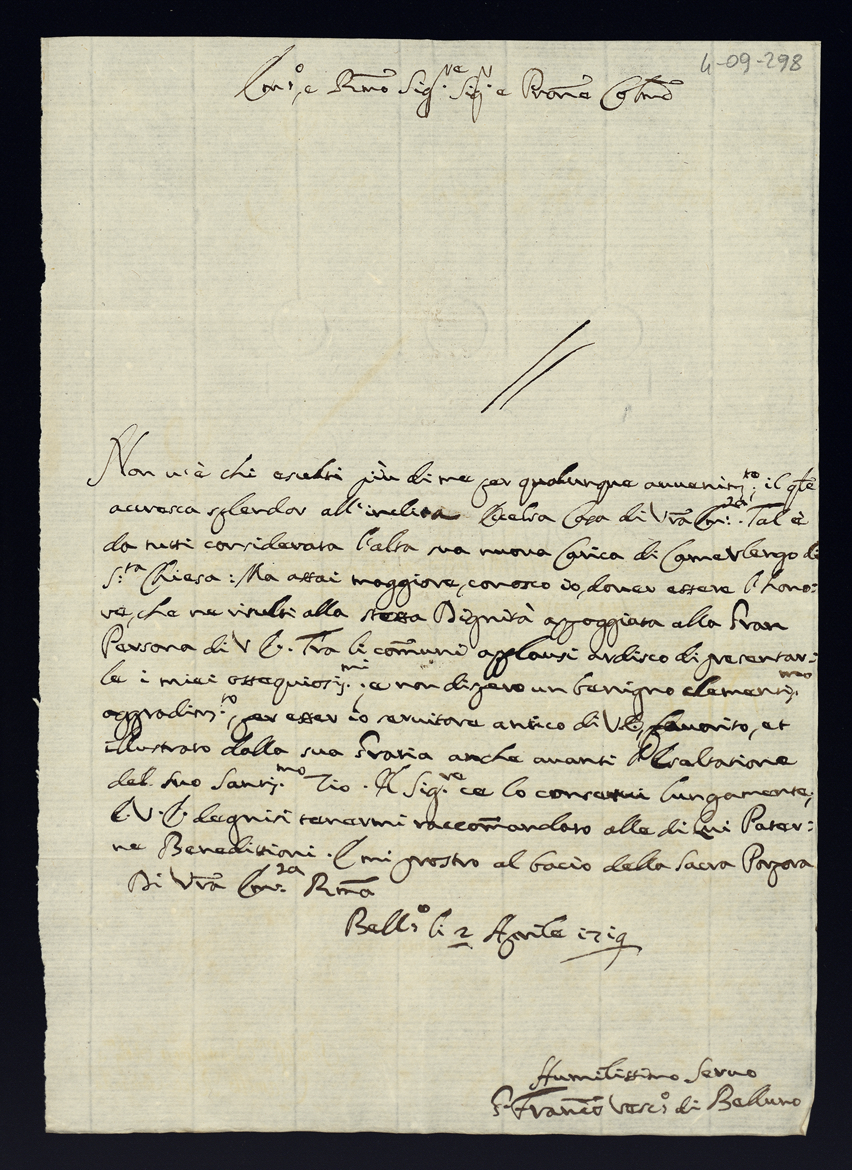 4-09-298
Em:o, e Rmo Sig:re Sig:r e Prone Colmo
Non u'è chi esulti più di me per qualunque auuenim:to, il qle
accresca splendor all'inclita Eccelsa Casa di Vra Em:za. Tal è
da tutti considerata l'alta sua nuoua Carica di Camerlengo di
S:ta Chiesa: Ma assai maggiore, conosco io, douer essere l'hono:
re, che ne risulti alla stessa Dignità appoggiata alla Gran
Persona di V E. Tra li comuni applausi ardisco di presentar:
le i miei ossequiosiss:mi, e non dispero un benigno clementiss:mo
aggradim:to, per esser io seruitore antico di V.E., fauorito, et
illustrato dalla sua Gratia anche auanti l'Esaltatione
del suo Santiss:mo Zio. Il Sig:re ce lo conserui lungamente,
E. V. E. degnisi tenermi raccomandato alle di Lui Pater:
ne Benedittioni. E mi prostro al bacio della Sacra Porpora
Di Vra Em:za Rma
Bell:o li 2 Aprile 1719
Humilissimo Seruo
Franco Vesc:o di Belluno